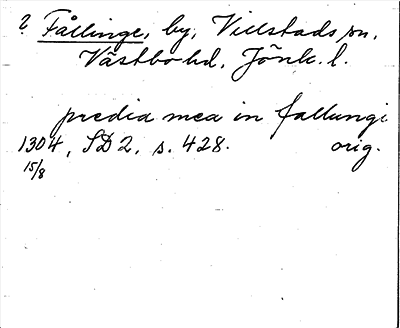 ? Fållinge, by, Villstads sn,
Västbo hd, Jönk. l.
predia mea in fallungi
1304, SD 2, s. 428. orig.
15/8